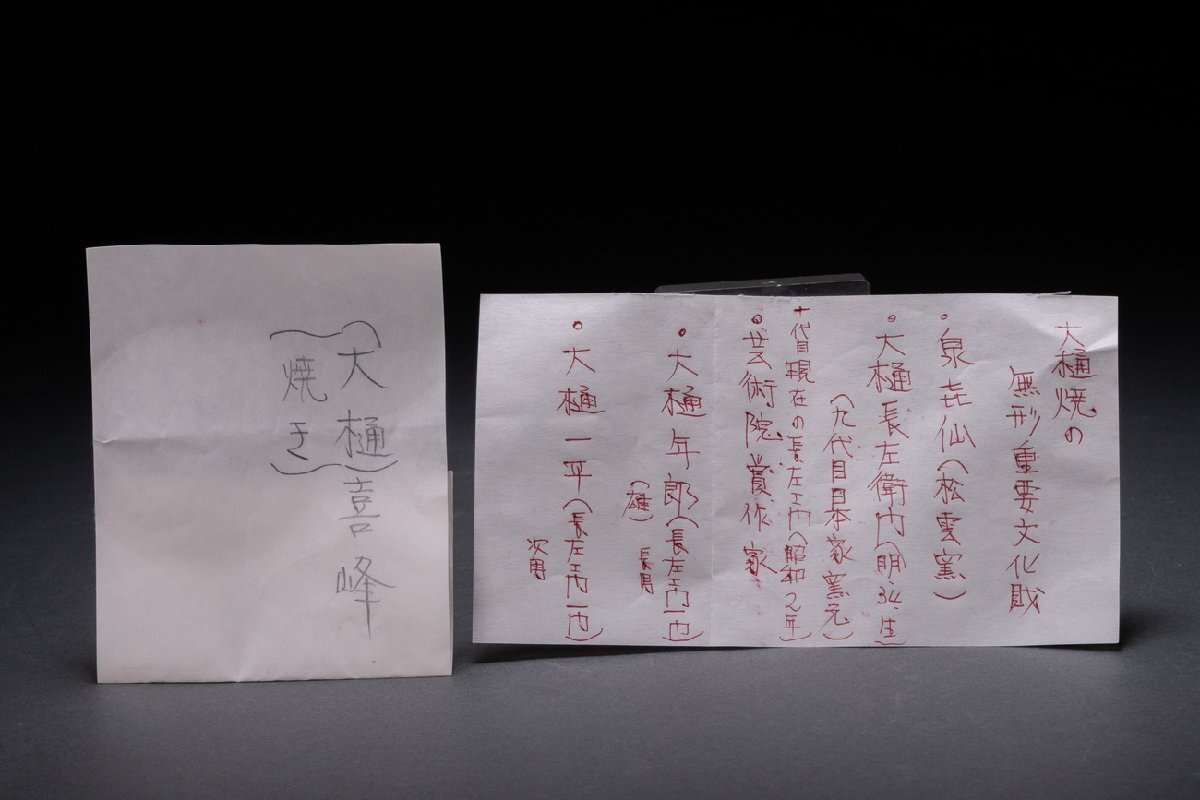 (大樋)喜峰
(焼き)
大樋焼の
無形重要文化財
・泉㐂仙(松雲窯)
・大樋長左衛门(明34.生)
(九代目日本家窯元)
十代目現在の長左エ门(昭和2年)
・芸術院賞作家
・大樋年郎(長左エ门一门)
(雄) 長男
・大樋一平(長左エ门一门)
次男